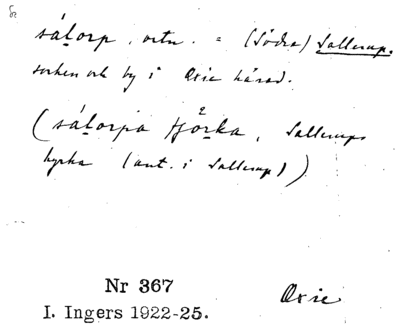 sálorp, ortn. = (Södra) Sallerup.
socken och by i Oxie härad.
(sálorpa tjörka, Sallerups
kyrka (ant. i Sallerup))
Nr 367
Oxie
I. Ingers 1922-25.